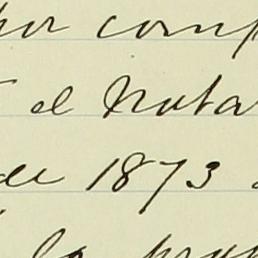 por comp
el Nota
de 1873
la